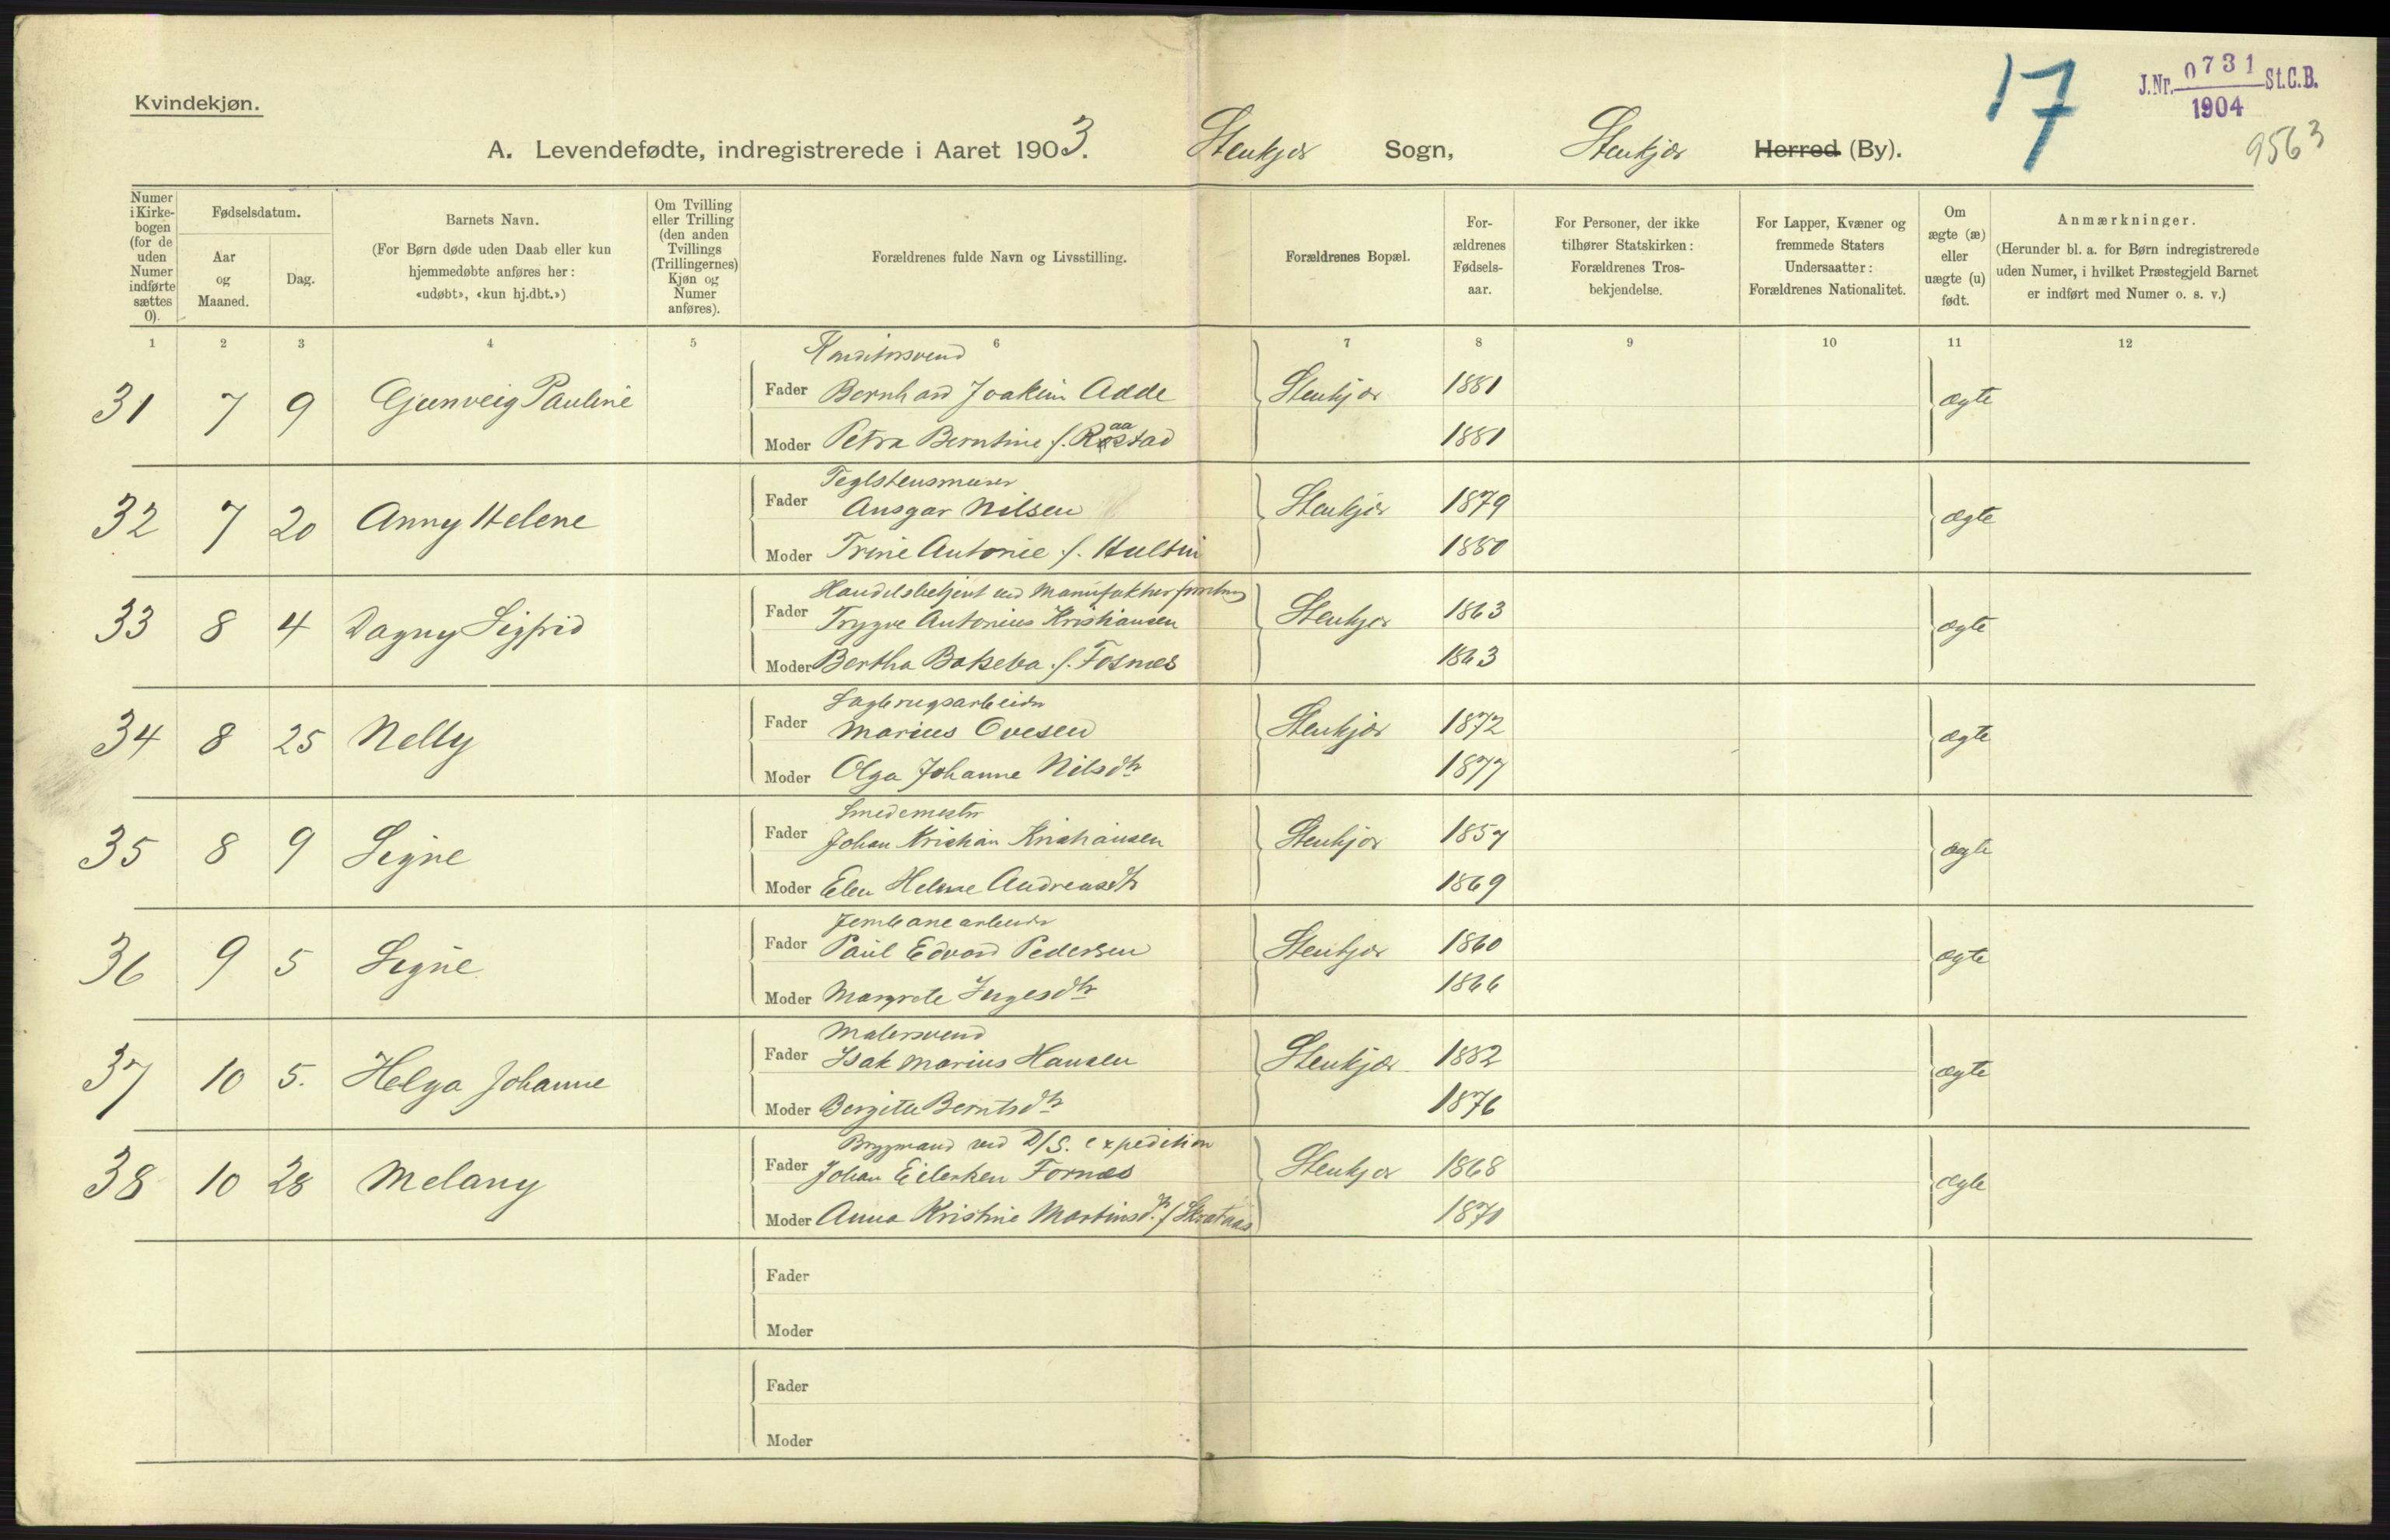 Kvindekjøn.
17
J.Nr. 0731 St.C.B.
1904
9563
A. Levendefødte, indregistrerede i Aaret 1903. Stenkjær Sogn, Stenkjær Herred (By).
Numer i Kirke-bogen (for de uden Numer indførte sættes 0).
Fødselsdatum.
Aar og Maaned.
Dag.
Barnets Navn.
(For Børn døde uden Daab eller kun hjemmedøbte anføres her: «udøbt», «kun hj.dbt.»)
Om Tvilling eller Trilling (den anden Tvillings (Trillingernes) Kjøn og Numer anføres).
Forældrenes fulde Navn og Livsstilling.
Forældrenes Bopæl.
For-ældrenes Fødsels-aar.
For Personer, der ikke tilhører Statskirken: Forældrenes Tros-bekjendelse.
For Lapper, Kvæner og fremmede Staters Undersaatter: Forældrenes Nationalitet.
Om ægte (æ) eller uægte (u) født.
Anmærkninger.
(Herunder bl. a. for Børn indregistrerede uden Numer, i hvilket Præstegjeld Barnet er indført med Numer o. s. v.)
1 2 3 4 5 6 7 8 9 10 11 12
Konditorsvend
31 7 9 Gjenveig Pauline Fader Bernhard Joakim Adde Stenkjær 1881 ægte
Moder Petra Berntine f. Raastad 1881
Teglstensmurer
32 7 20 Anny Helene Fader Ansgar Nilsen Stenkjær 1879 ægte
Moder Trine Antonie f. Hultin 1880
Handelsbetjent ved Manufakturforretning
33 8 4 Dagny Sigfrid Fader Trygve Antonius Kristiansen Stenkjær 1863 ægte
Moder Bertha Batseba f. Fosnes 1863
Sagbrugsarbeider
34 8 25 Nelly Fader Marius Ovesen Stenkjær 1872 ægte
Moder Olga Johanne Nilsdtr 1877
Smedemester
35 8 9 Signe Fader Johan Kristian Kristiansen Stenkjær 1857 ægte
Moder Elen Helene Andreasdtr 1869
Jernbanearbeider
36 9 5 Signe Fader Paul Edvard Pedersen Stenkjær 1860 ægte
Moder Margrete Ingesdtr 1866
Malersvend
37 10 5. Helga Johanne Fader Isak Marius Hansen Stenkjær 1882 ægte
Moder Bergitte Berntsdtr 1876
Bryggmand ved D/S. expedition
38 10 28 Melany Fader Johan Eilertsen Fornæs Stenkjær 1868 ægte
Moder Anna Kristine Martinsdtr. f. 1870
Fader
Moder
Fader
Moder